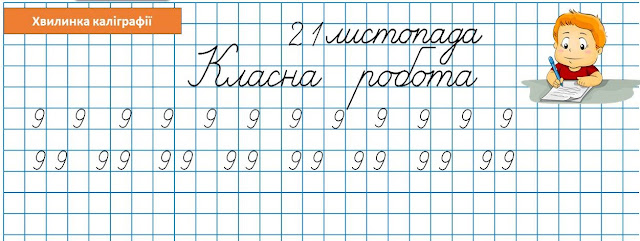 Хвилинка каліграфії
21 листопада
Класна робота
9 9 9 9 9 9 9 9 9 9 9 9
99 99 99 99 99 99 99 99